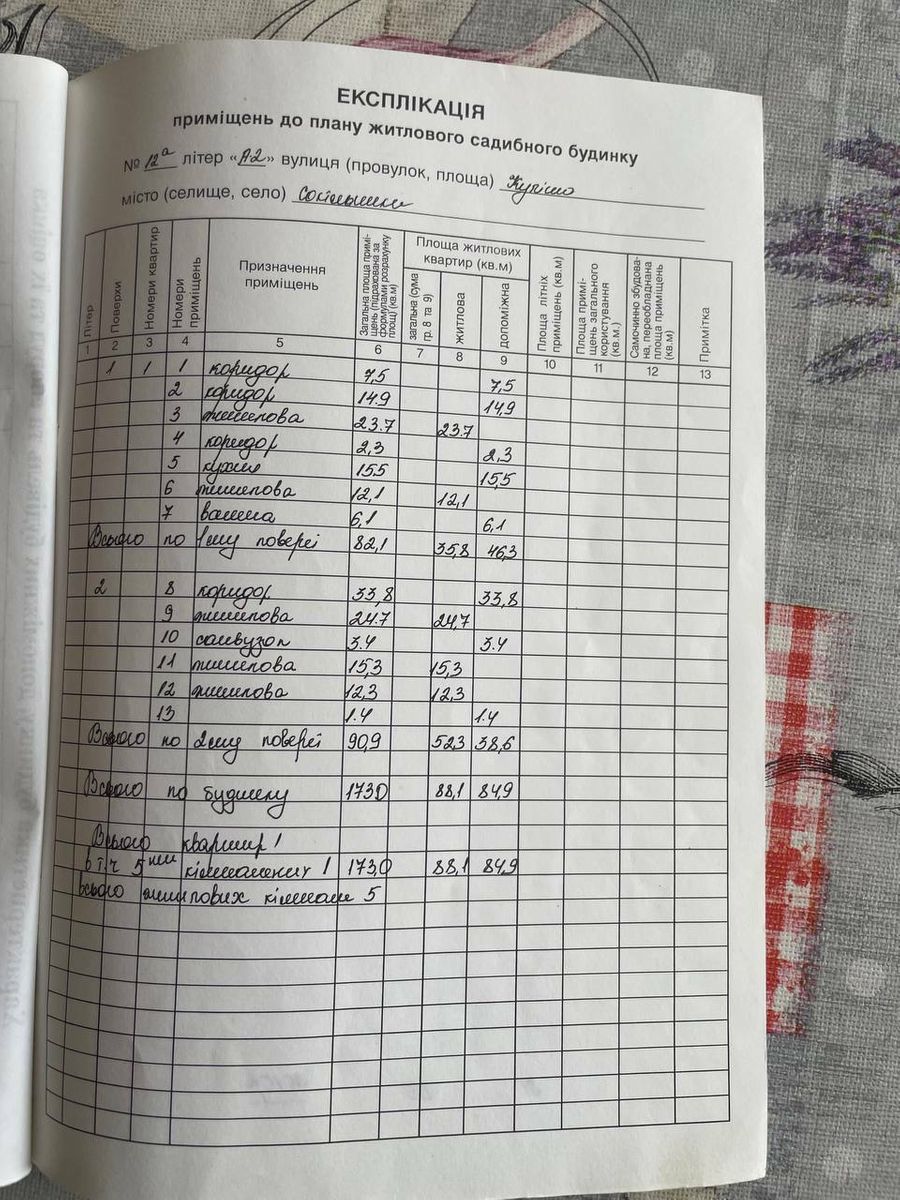 ЕКСПЛІКАЦІЯ
приміщень до плану житлового садибного будинку
№ 12а літер «А2» вулиця (провулок, площа)
місто (селище, село)
Літер Поверхи Номери квартир Номери приміщень Призначення приміщень Загальна площа приміщень (підрахована за формулами розрахунку площі) (кв.м) Площа житлових квартир (кв.м) загальна (сума гр. 8 та 9) житлова допоміжна Площа літніх приміщень (кв.м) Площа приміщень загального користування (кв.м.) Самочинно збудована, переобладнана площа приміщень (кв.м) Примітка
1 2 3 4 5 6 7 8 9 10 11 12 13
1 1 1 коридор 7,5 7,5
2 коридор 14.9 14,9
3 житлова 23.7 23.7
4 коридор 2,3 2.3
5 кухня 15.5 15,5
6 житлова 12,1 12,1
7 ванна 6,1 6.1
Всього по 1му поверсі 82,1 35,8 46,3
2 8 коридор 33,8 33,8
9 житлова 24.7 24,7
10 санвузол 3.4 3.4
11 житлова 15,3 15,3
12 житлова 12,3 12,3
13 1.4 1.4
Всього по 2му поверсі 90,9 52,3 38,6
Всього по будинку 173,0 88,1 84,9
Всього квартир 1
в т.ч 5ти кімнатних 1 173,0 88,1 84,9
всього житлових кімнат 5